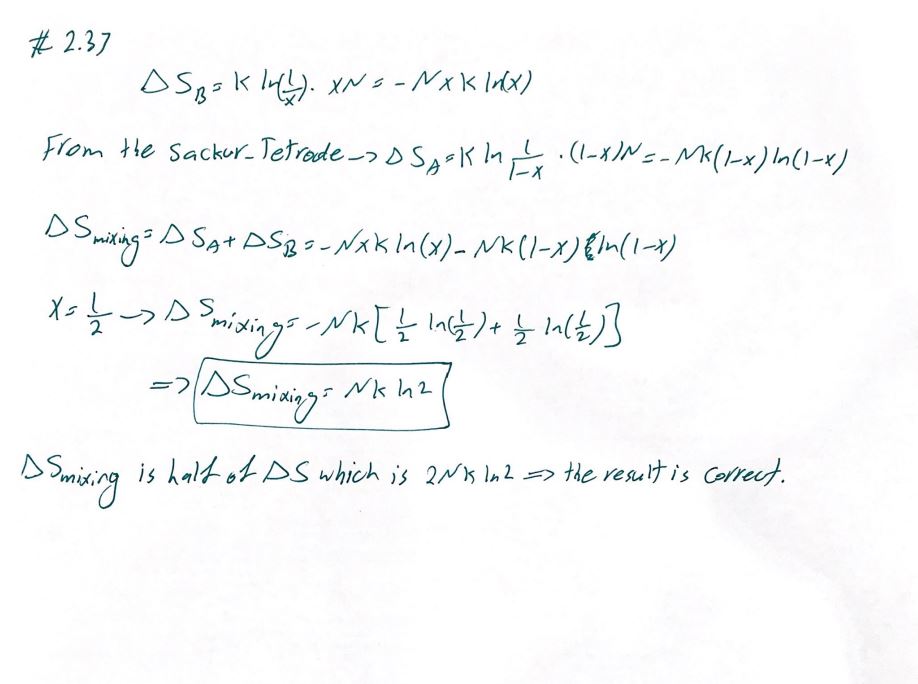 # 2.37
Δ S_B = K ln(1/x) . xN = - N x K ln(x)
From the Sackur-Tetrode -> Δ S_A = K ln 1/(1-x) . (1-x)N = - NK(1-x) ln(1-x)
Δ S_mixing = Δ S_A + Δ S_B = - N x K ln(x) - NK(1-x) ln(1-x)
x = 1/2 -> Δ S_mixing = - NK [ 1/2 ln(1/2) + 1/2 ln(1/2) ]
=> Δ S_mixing = NK ln 2
Δ S_mixing is half of ΔS which is 2NK ln 2 => the result is correct.